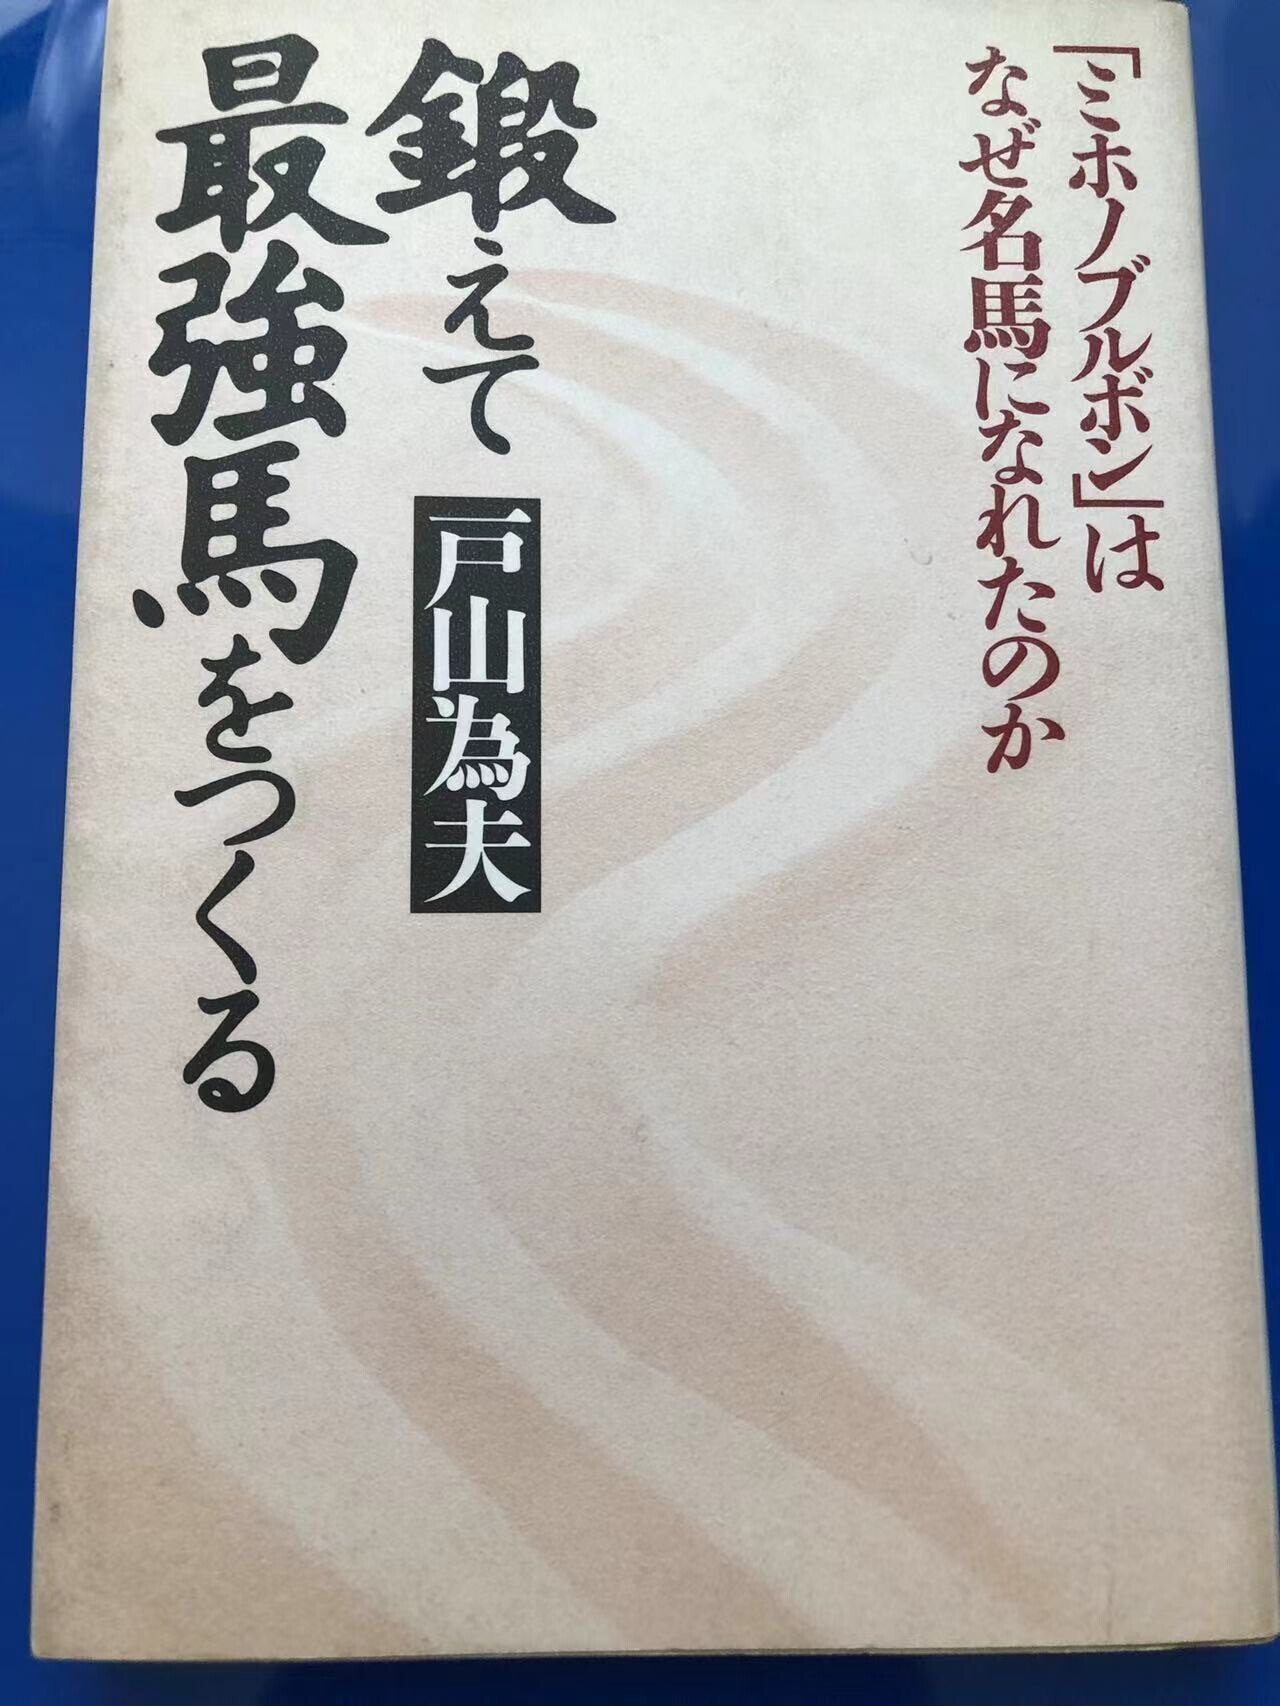 「ミホノブルボン」は
なぜ名馬になれたのか
鍛えて
最強馬をつくる
戸山為夫